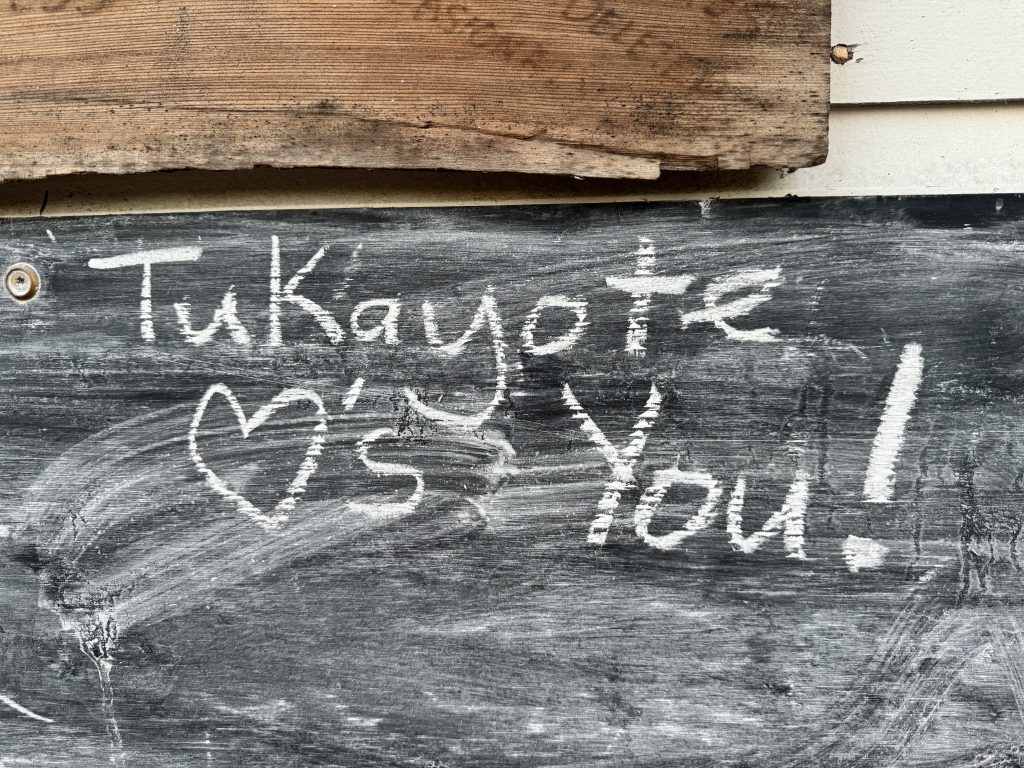 Tukayote
♡'s You!